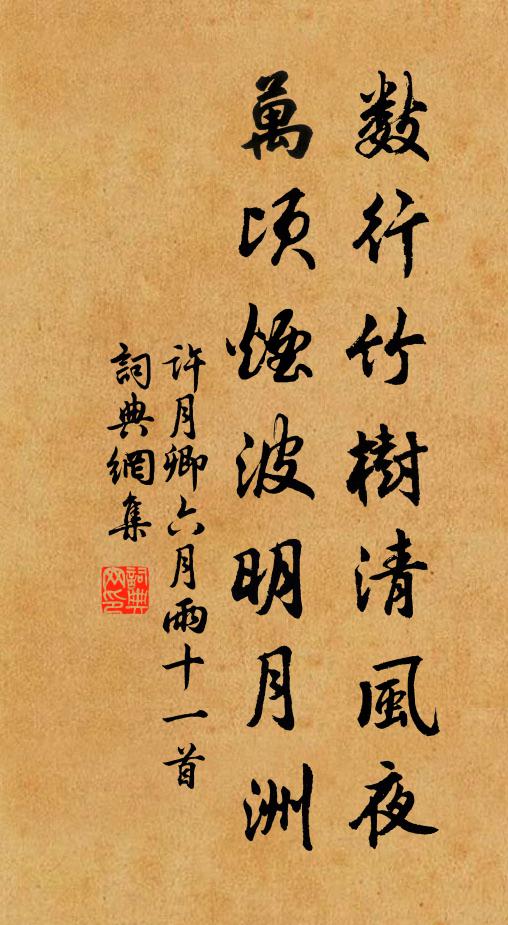 数行竹樹清風夜
萬頃煙波明月洲
許月卿六月雨十一首
詞典網集
詞典網印